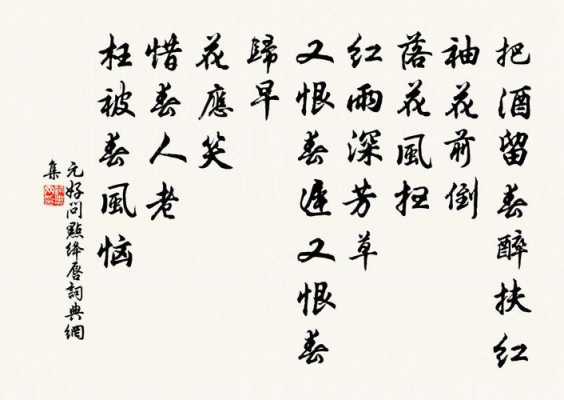 把酒留春醉扶红
袖花前倒
落花風扫
红雨深芳草
又恨春遲又恨春
歸早
花應笑
惜春人老
枉被春風恼
元好问點绛唇詞典網
集